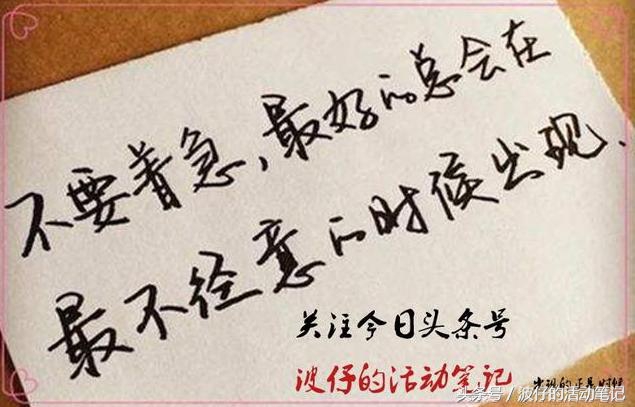 不要着急,最好的总会在
最不经意的时候出现.
关注今日头条号
波仔的活动笔记
出现的正是时候
头条号/波仔的活动笔记